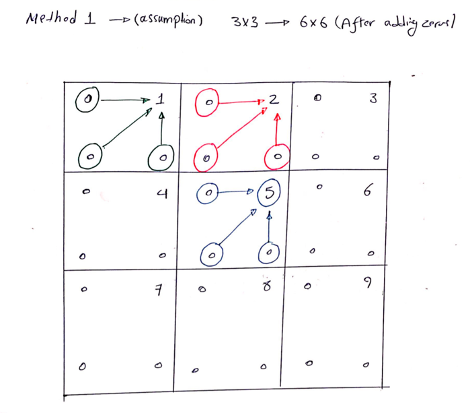 Method 1 → (assumption) 3x3 → 6x6 (After adding zeros)
0 → 1 0 → 2 0 3
0 0 0 0 0 0
0 4 0 → 5 0 6
0 0 0 0 0 0
0 7 0 8 0 9
0 0 0 0 0 0